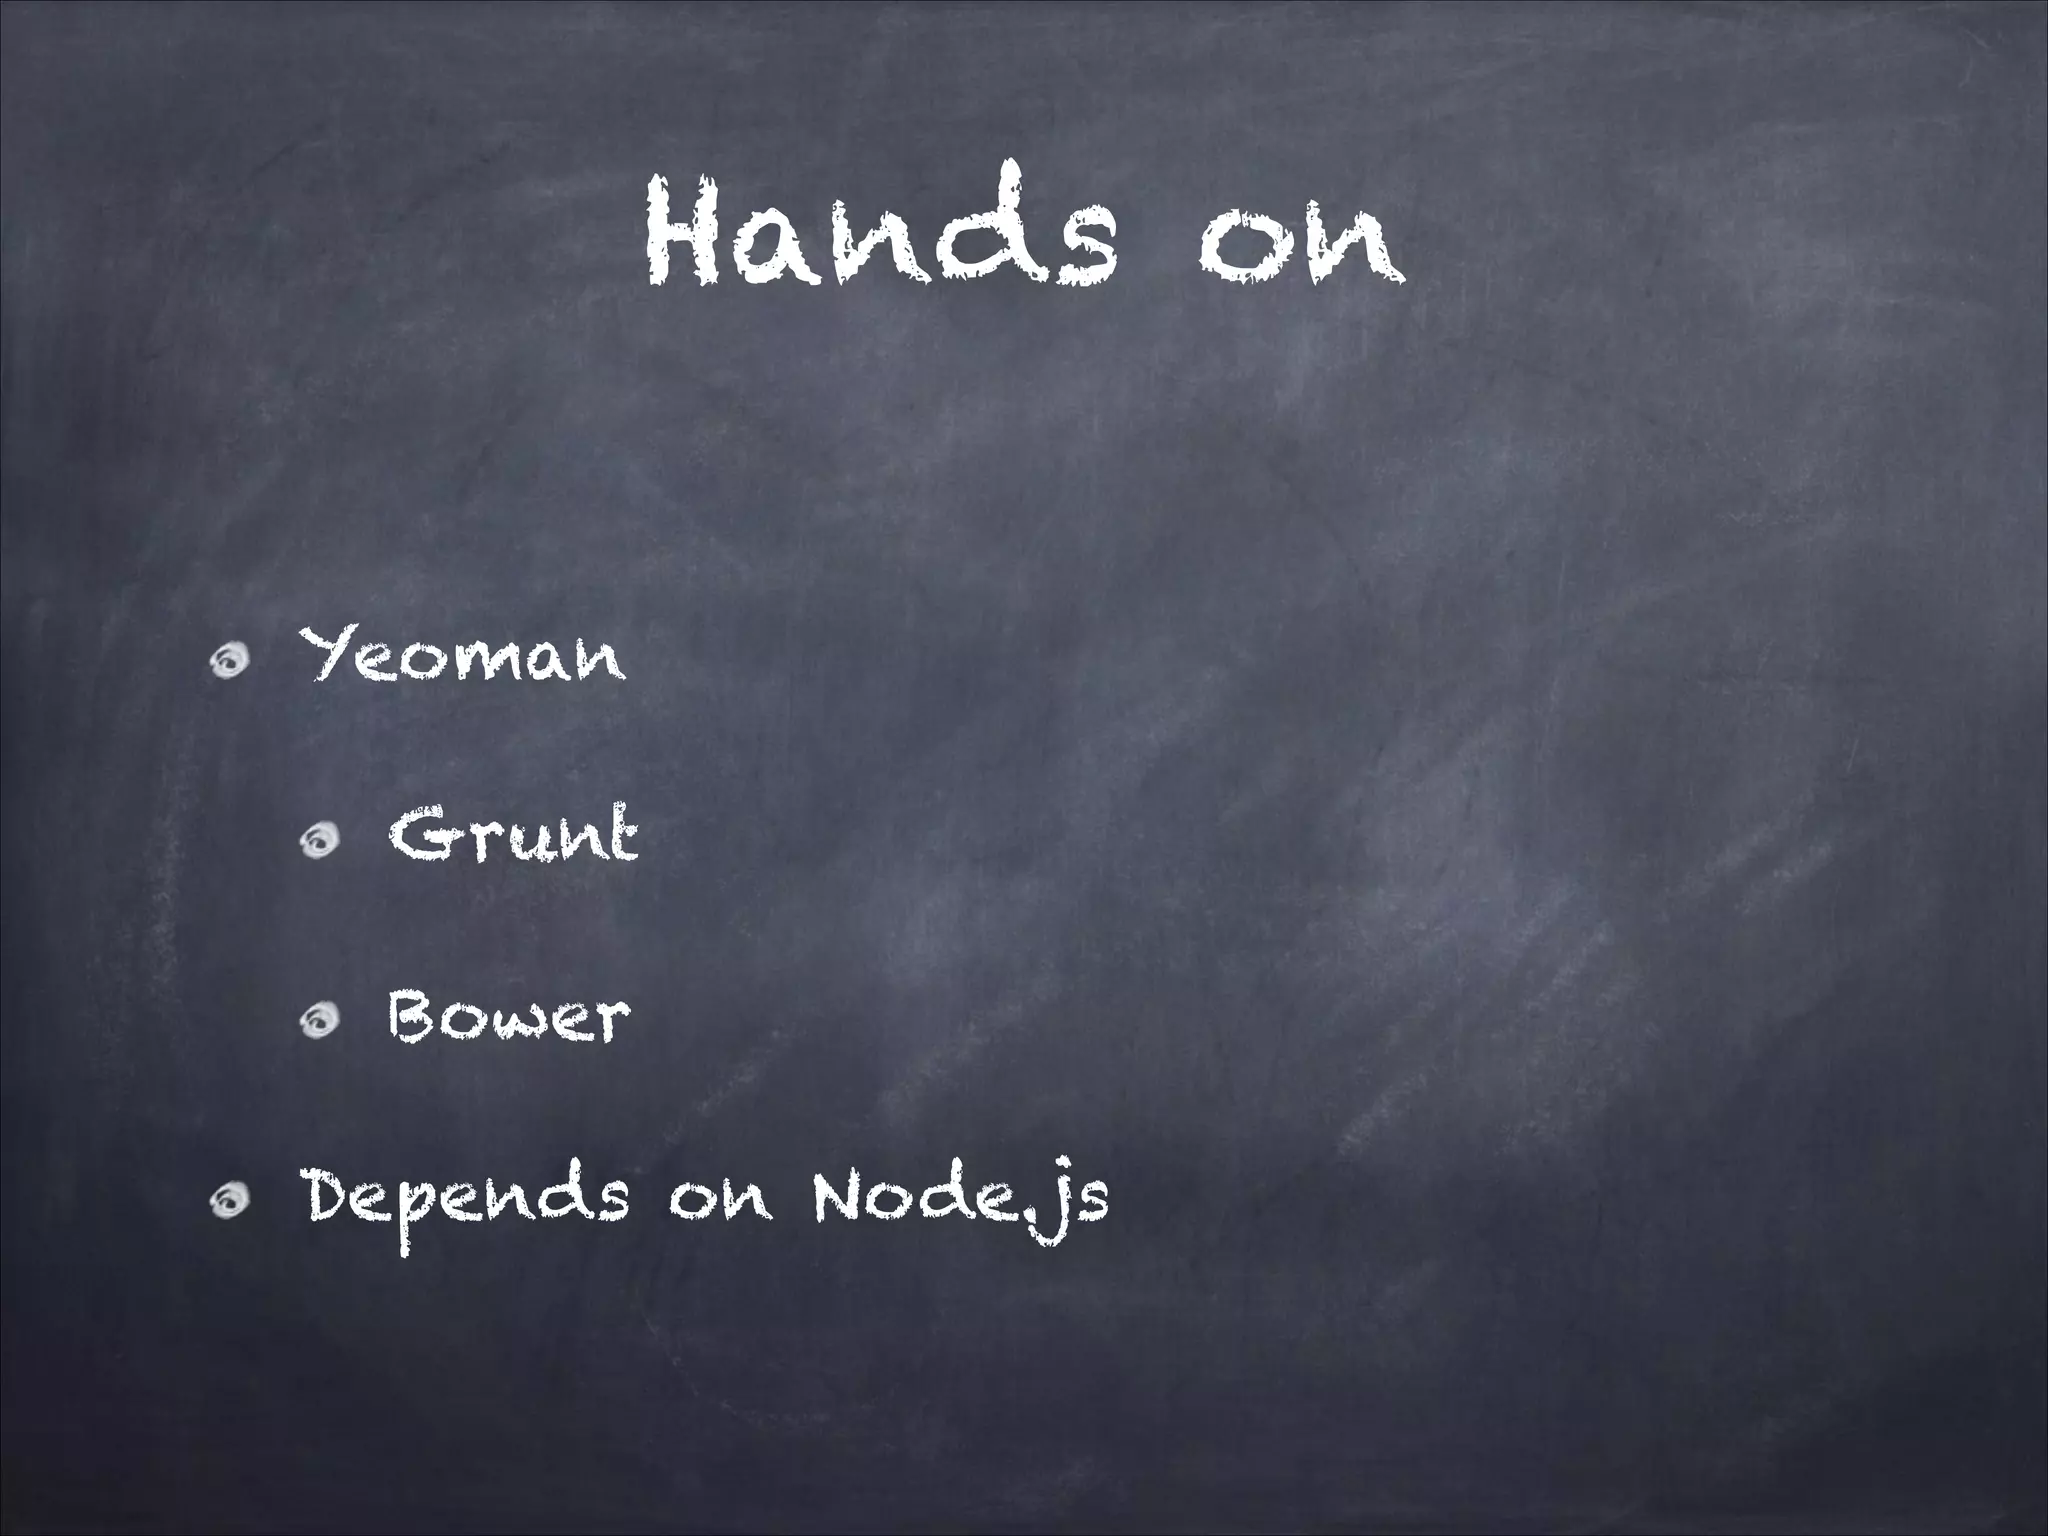 Hands on
Yeoman
Grunt
Bower
Depends on Node.js